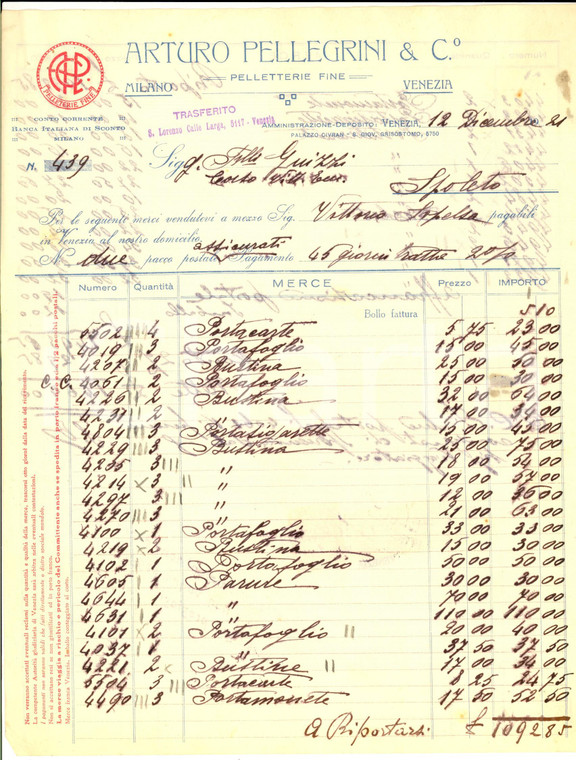 ARTURO PELLEGRINI & C.º
PELLETTERIE FINE
MILANO VENEZIA
PELLETTERIE FINE
CONTO CORRENTE
BANCA ITALIANA DI SCONTO
MILANO
TRASFERITO
S. Lorenzo Calle Larga, 5117 - Venezia
AMMINISTRAZIONE-DEPOSITO: VENEZIA, 12 Dicembre 21
PALAZZO CIVRAN - S. GIOV. GRISOSTOMO, 5760
N. 439
Sig. g. Flli Guizzi
Corso Vitt. Em.
Spoleto
Per le seguente merci vendutevi a mezzo Sig. Vittorio pagabili
in Venezia al nostro domicilio
N. due pacco postale assicurati Pagamento 45 giorni tratta 2%
Numero Quantità MERCE Prezzo IMPORTO
Bollo fattura 510
5502 4 Portacarte 5 75 23 00
4019 3 Portafoglio 15 00 45 00
4207 2 Bustina 25 00 50 00
C. C. 4061 2 Portafoglio 15 00 30 00
4226 2 Bustina 32 00 64 00
4231 2 " 17 00 34 00
4804 3 Portasigarette 15 00 45 00
4229 3 Bustina 25 00 75 00
4235 3 " 18 00 54 00
4214 x 3 " 19 00 57 00
4297 3 " 12 00 36 00
4270 3 " 21 00 63 00
4100 x 1 Portafoglio 33 00 33 00
4219 x 2 Bustina 15 00 30 00
4102 1 Portafoglio 50 00 50 00
4605 1 Parure 30 00 30 00
4644 1 " 70 00 70 00
4631 1 " 110 00 110 00
4101 x 2 Portafoglio " 20 00 40 00
4037 1 37 50 37 50
4221 2 Bustine " 17 00 34 00
5504 3 Portacarte 8 25 24 75
4490 3 Portamonete 17 50 52 50
A Riportarsi £ 1092 85
Non verranno accettati eventuali reclami sulla quantità e qualità della merce, trascorsi otto giorni dalla data del ricevimento.
La competente Autorità giudiziaria di Venezia sarà arbitra nelle eventuali contestazioni.
I pagamenti non saranno validi se non giustificati da nostra formale quietanza.
Non si accettano resi se non giustificati ed in porto franco.
La merce viaggia a rischio e pericolo del Committente anche se spedita in porto franco con 1/2 pacchi postali
Merce franca Venezia. Imballo conteggiato al costo.